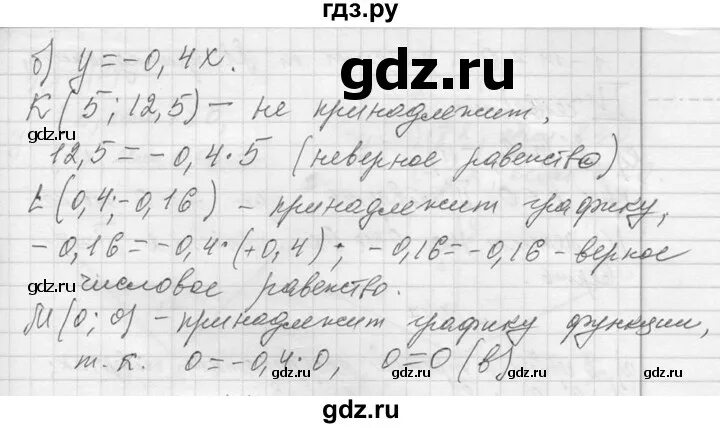 гдз.ру
б) y = -0,4x.
gdz.ru
K(5; 12,5) - не принадлежит,
gdz.ru gdz.ru
12,5 = -0,4·5 (неверное равенство)
gdz.ru
L(0,4; -0,16) - принадлежит графику,
-0,16 = -0,4·(+0,4); -0,16 = -0,16 - верное
gdz.ru gdz.ru
числовое равенство.
M(0; 0) - принадлежит графику функции,
т.к. 0 = -0,4·0, 0 = 0 (в)
gdz.ru gdz.ru
gdz.ru
gdz.ru